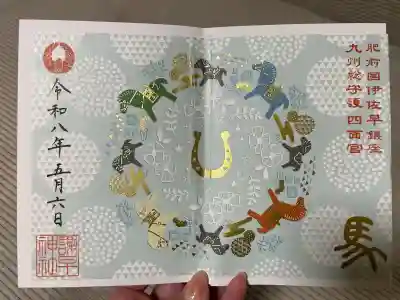 肥前国伊佐早鎮座
九州総守護四面宮
馬
令和八年五月六日
諫早
神社